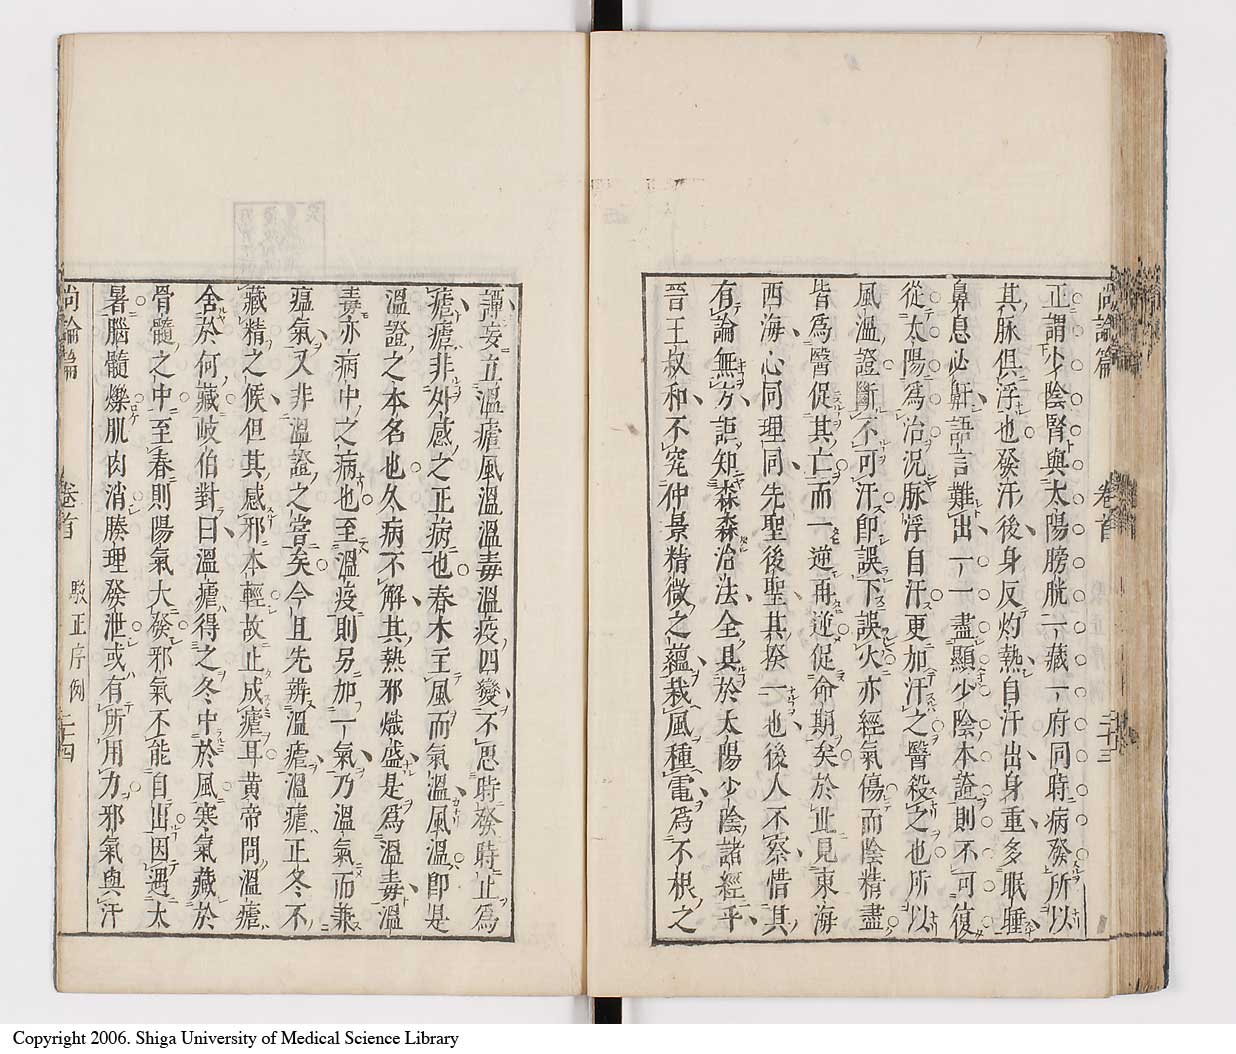 尚論篇
卷首
二十三
正謂少陰腎與太陽膀胱一藏一府同時病發所以
其脉俱浮也發汗後身反灼熱自汗出身重多眠睡
鼻息必鼾語言難出一一盡顯少陰本證則不可復
從太陽爲治況脉浮自汗更加汗之醫殺之也所以
風溫證斷不可汗卽誤下誤火亦經氣傷而陰精盡
皆爲醫促其亡而一逆再逆促命期矣於此見東海
西海心同理同先聖後聖其揆一也後人不察惜其
有論無方詎知森森治法全具於太陽少陰諸經乎
晉王叔和不究仲景精微之蘊栽風種電爲不根之
譚妄立溫瘧風溫溫毒溫疫四變不思時發時止爲
瘧瘧非外感之正病也春木主風而氣溫風溫卽是
溫證之本名也久病不解其熱邪熾盛是爲溫毒溫
毒亦病中之病也至溫疫則另加一氣乃溫氣而兼
瘟氣又非溫證之常矣今且先辨溫瘧溫瘧正冬不
藏精之候但其感邪本輕故止成瘧耳黃帝問溫瘧
舍於何藏岐伯對曰溫瘧得之冬中於風寒氣藏於
骨髓之中至春則陽氣大發邪氣不能自出因遇太
暑腦髓爍肌肉消腠理發泄或有所用力邪氣與汗
尚論篇
卷首
駁正序例
二十四
Copyright 2006. Shiga University of Medical Science Library